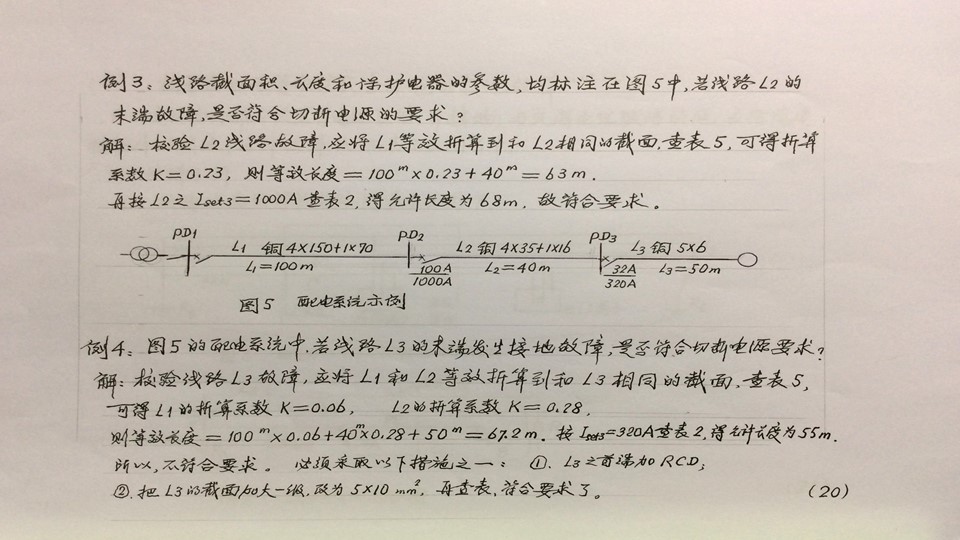 例3：线路截面积、长度和保护电器的参数，均标注在图5中，若线路L2的
末端故障，是否符合切断电源的要求？
解：校验L2线路故障，应将L1等效折算到和L2相同的截面，查表5，可得折算
系数K=0.23，则等效长度=100ᵐ×0.23+40ᵐ=63m.
再按L2之Iset3=1000A查表2，得允许长度为68m，故符合要求。
PD1 L1 铜4×150+1×70 PD2 L2 铜4×35+1×16 PD3 L3 铜5×6
L1=100m 100A/1000A L2=40m 32A/320A L3=50m
图5 配电系统示例
例4：图5的配电系统中，若线路L3的末端发生接地故障，是否符合切断电源要求？
解：校验线路L3故障，应将L1和L2等效折算到和L3相同的截面，查表5，
可得L1的折算系数K=0.06， L2的折算系数K=0.28，
则等效长度=100ᵐ×0.06+40ᵐ×0.28+50ᵐ=67.2m. 按Iset3=320A查表2，得允许长度为55m.
所以，不符合要求。 必须采取以下措施之一：①. L3之首端加RCD；
②.把L3的截面加大一级，改为5×10mm²，再查表，符合要求了。
(20)